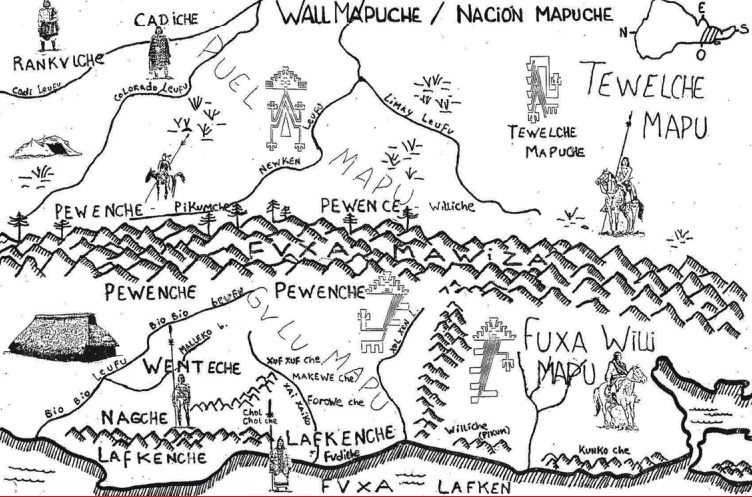 WALL MAPUCHE / NACIÓN MAPUCHE
E
N
S
O
CADICHE
RANKVLCHE
Cadi Leufu
COLORADO LEUFU
PUEL MAPU
NEWKEN LEUFU
LIMAY LEUFU
TEWELCHE MAPU
TEWELCHE
MAPUCHE
PEWENCHE - PiKUMChe
PEWENCE - Williche
FVXA MAWiZA
PEWENCHE
PEWENCHE
GVLU MAPU
BIO BIO LEUFU
MALLEKO L.
BIO BIO LEUFU
WENTECHE
NAGCHE
LAFKENCHE
XUF XUF che
MAKEWE che
FOROWE che
XAI XAIKO
CHOL
CHOL che
LAFKENCHE
Fudiche
FUXA Willi
MAPU
Williche
(PIKUM)
KUNKO che
FVXA LAFKEN